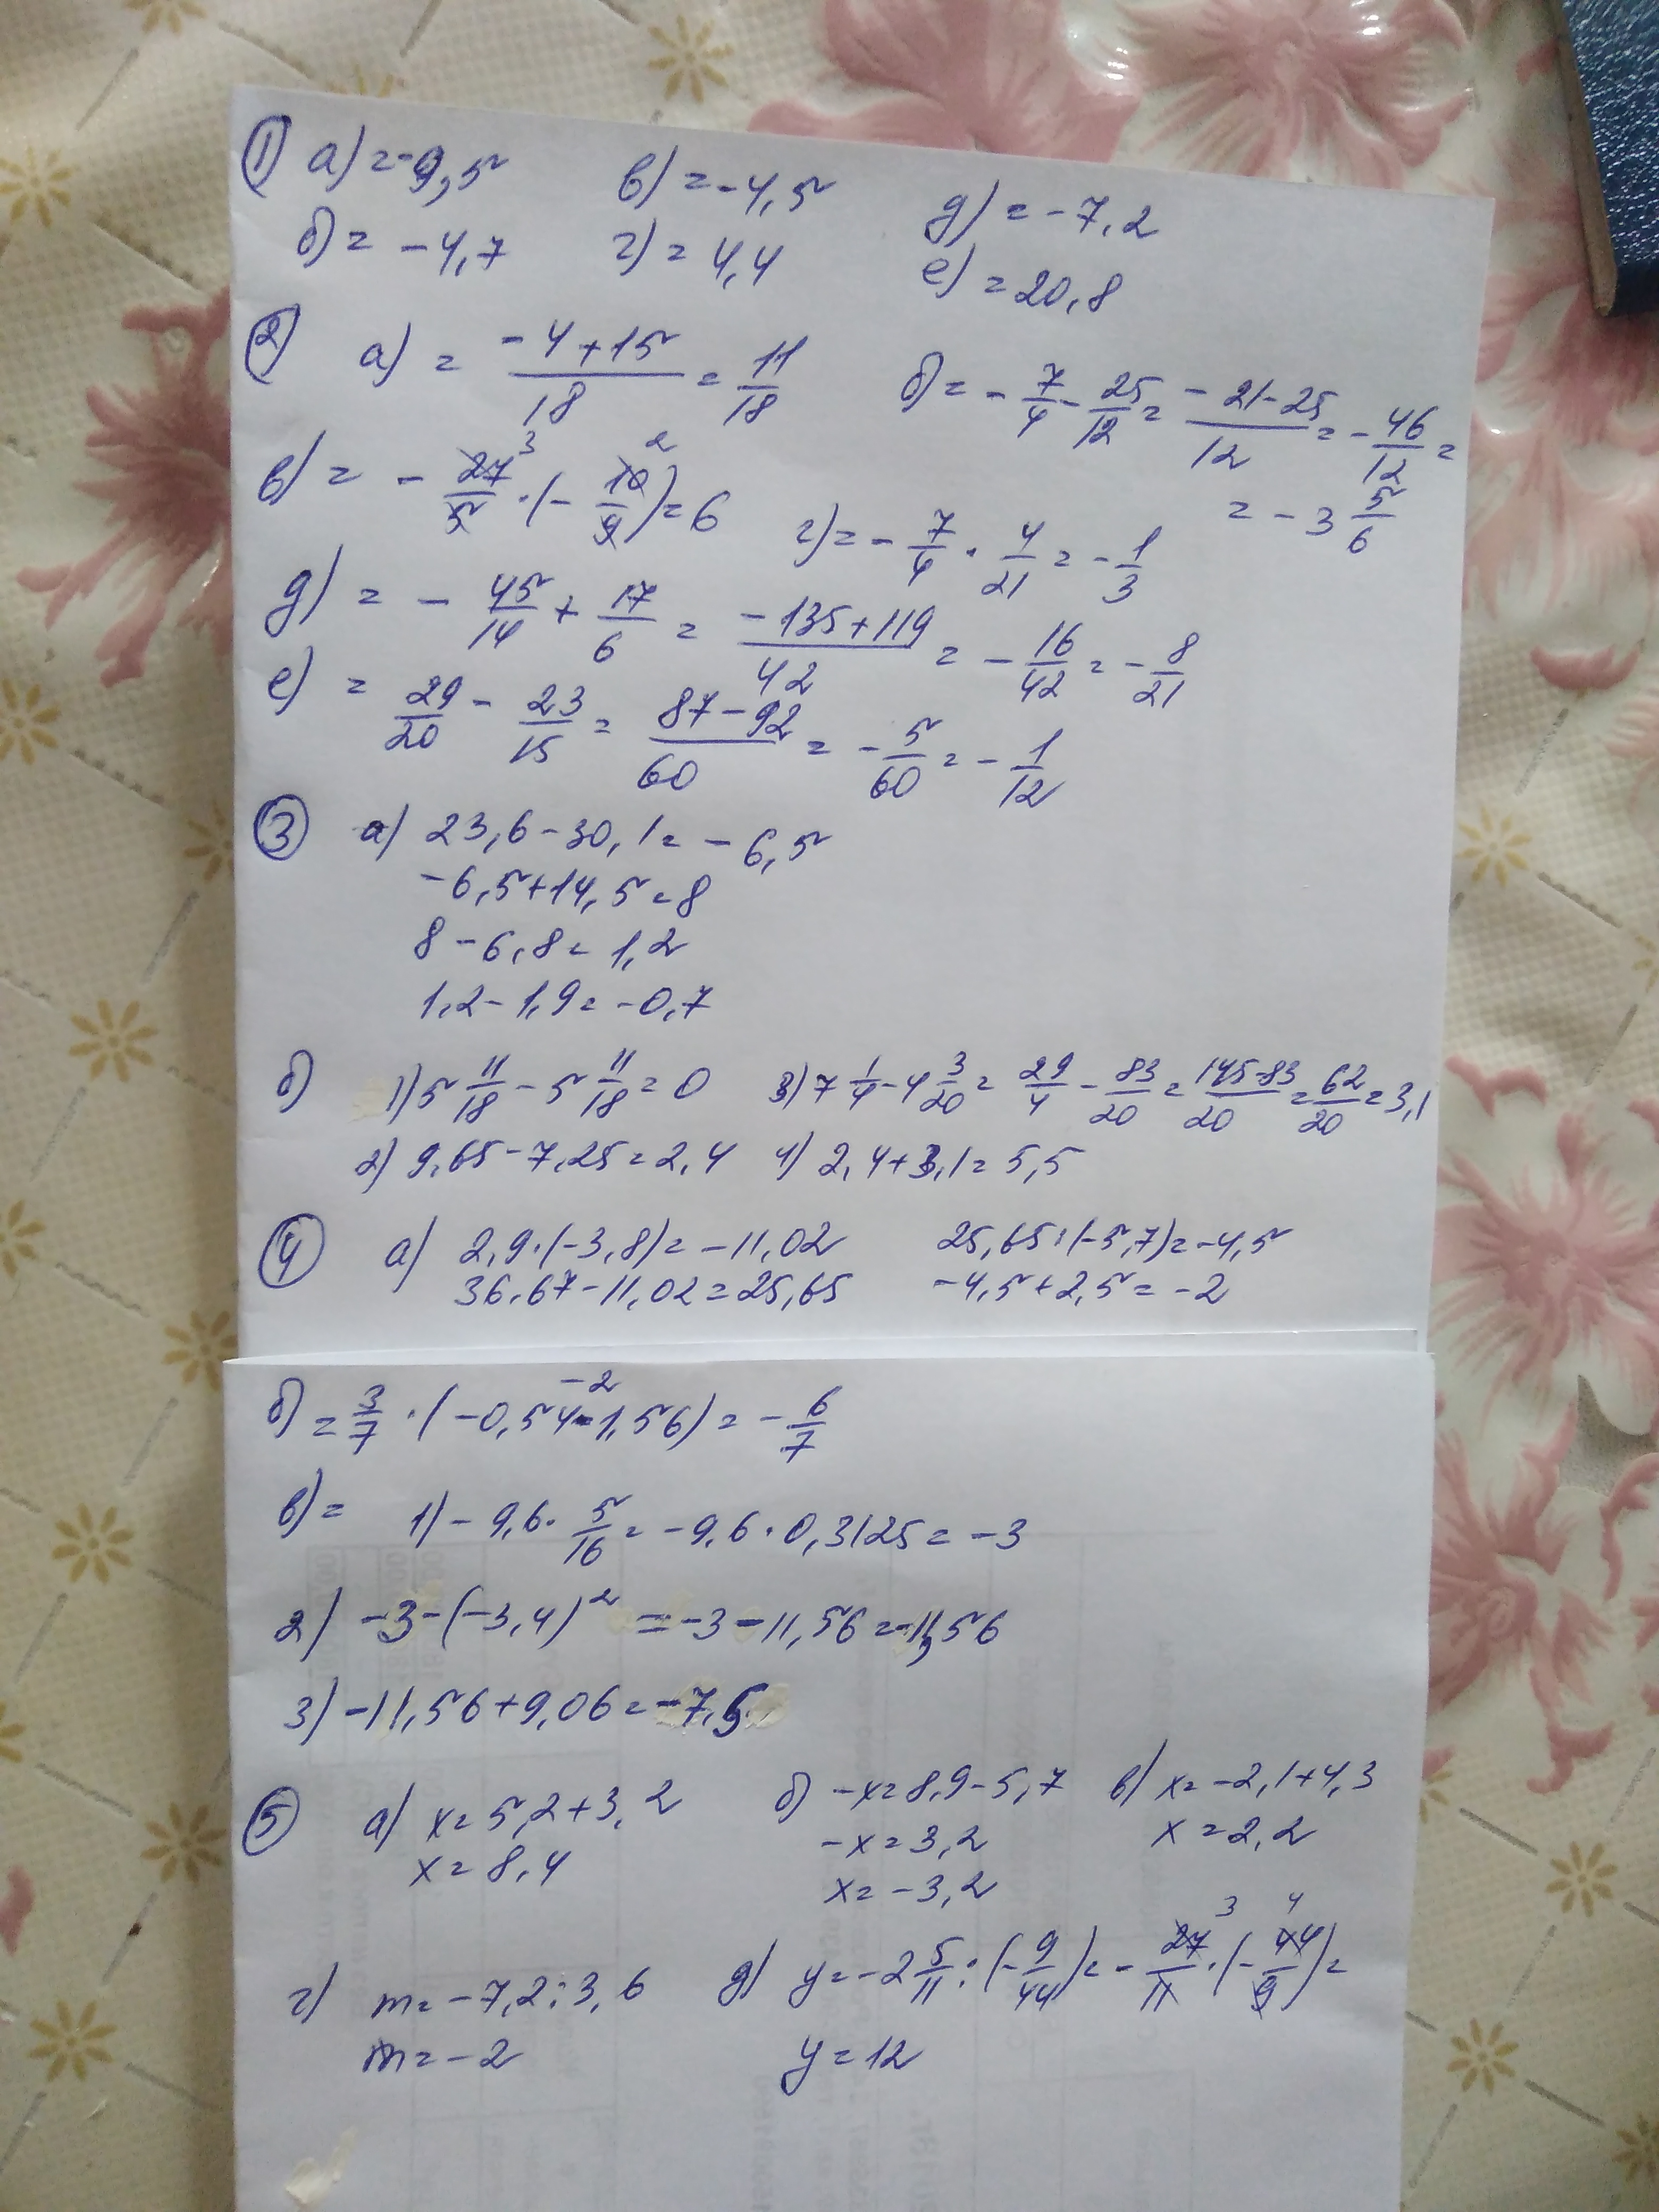 ① а) = -9,5   в) = -4,5   д) = -7,2
б) = -4,7   г) = 4,4   е) = 20,8
② а) = (-4+15)/18 = 11/18   б) = -7/4 - 25/12 = (-21-25)/12 = -46/12 =
= -3 5/6
в) = -27/5 · (-10/9) = 6   3   2
г) = -7/4 · 4/21 = -1/3
д) = -45/14 + 17/6 = (-135+119)/42 = -16/42 = -8/21
е) = 29/20 - 23/15 = (87-92)/60 = -5/60 = -1/12
③ а) 23,6-30,1 = -6,5
-6,5+14,5 = 8
8-6,8 = 1,2
1,2-1,9 = -0,7
б) 1) 5 11/18 - 5 11/18 = 0   3) 7 1/4 - 4 3/20 = 29/4 - 83/20 = (145-83)/20 = 62/20 = 3,1
2) 9,65-7,25 = 2,4   4) 2,4+3,1 = 5,5
④ а) 2,9·(-3,8) = -11,02   25,65:(-5,7) = -4,5
36,67-11,02 = 25,65   -4,5+2,5 = -2
б) = 3/7 · (-0,54-1,56) = -6/7   -2
в) = 1) -9,6 · 5/16 = -9,6 · 0,3125 = -3
2) -3-(-3,4)² = -3-11,56 = -11,56
3) -11,56+9,06 = -7,5
⑤ а) x = 5,2+3,2   б) -x = 8,9-5,7   в) x = -2,1+4,3
x = 8,4   -x = 3,2   x = 2,2
x = -3,2
г) m = -7,2:3,6   д) y = -2 5/11 : (-9/44) = -27/11 · (-44/9) =   3   4
m = -2   y = 12